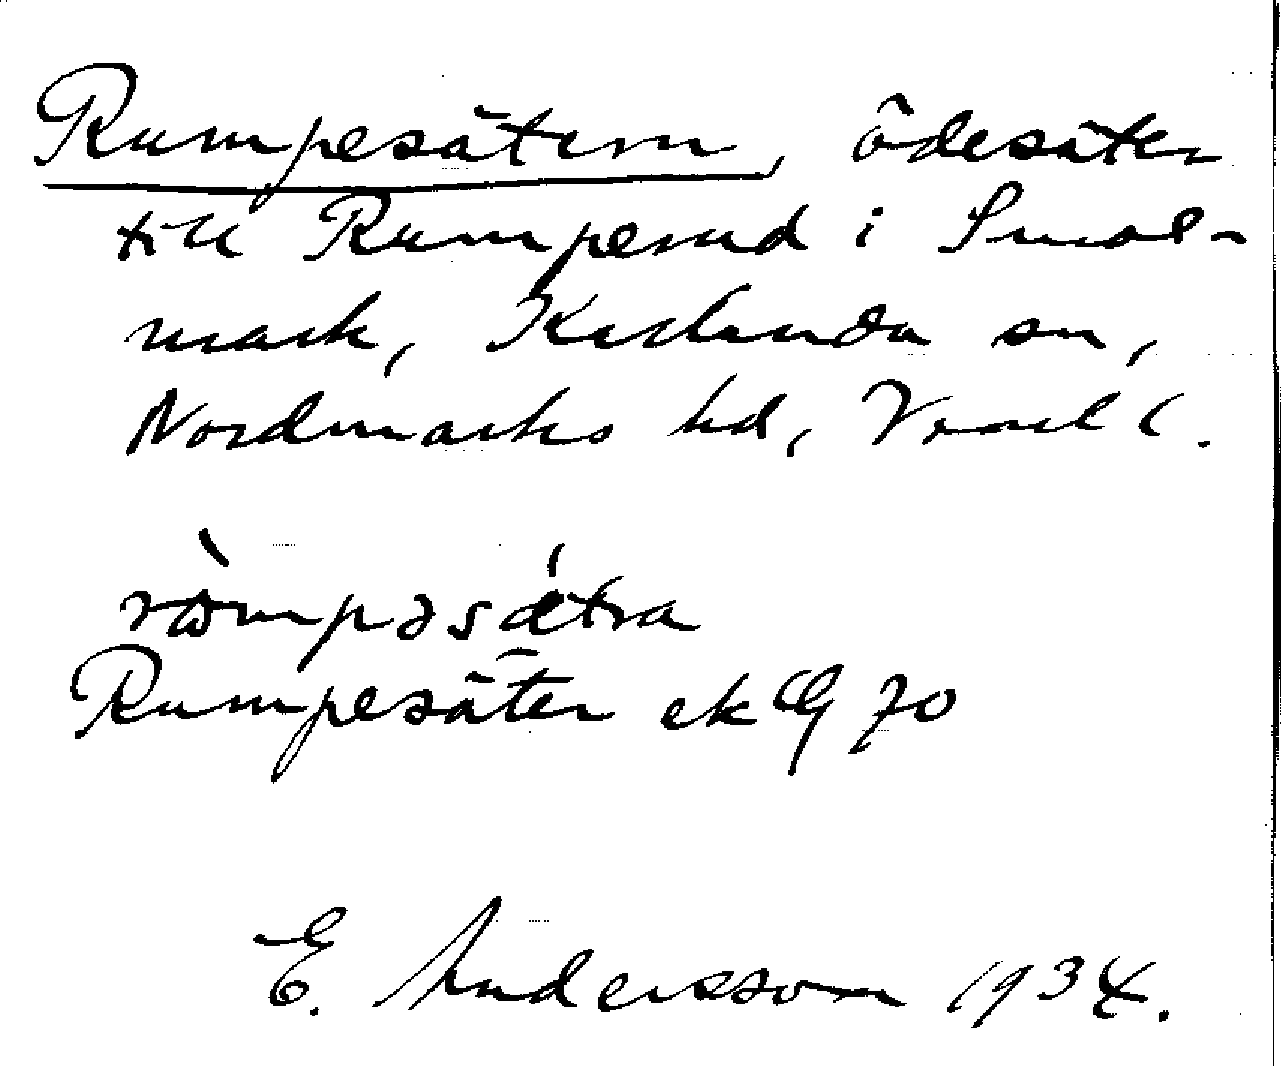 Rumpesätern, ödesäter
till Rumperud i Smol-
mark, Karlanda sn,
Nordmarks hd, Vrml l.
ròmpəsǽtra
Rumpesäter ek 70
E. Andersson 1934.